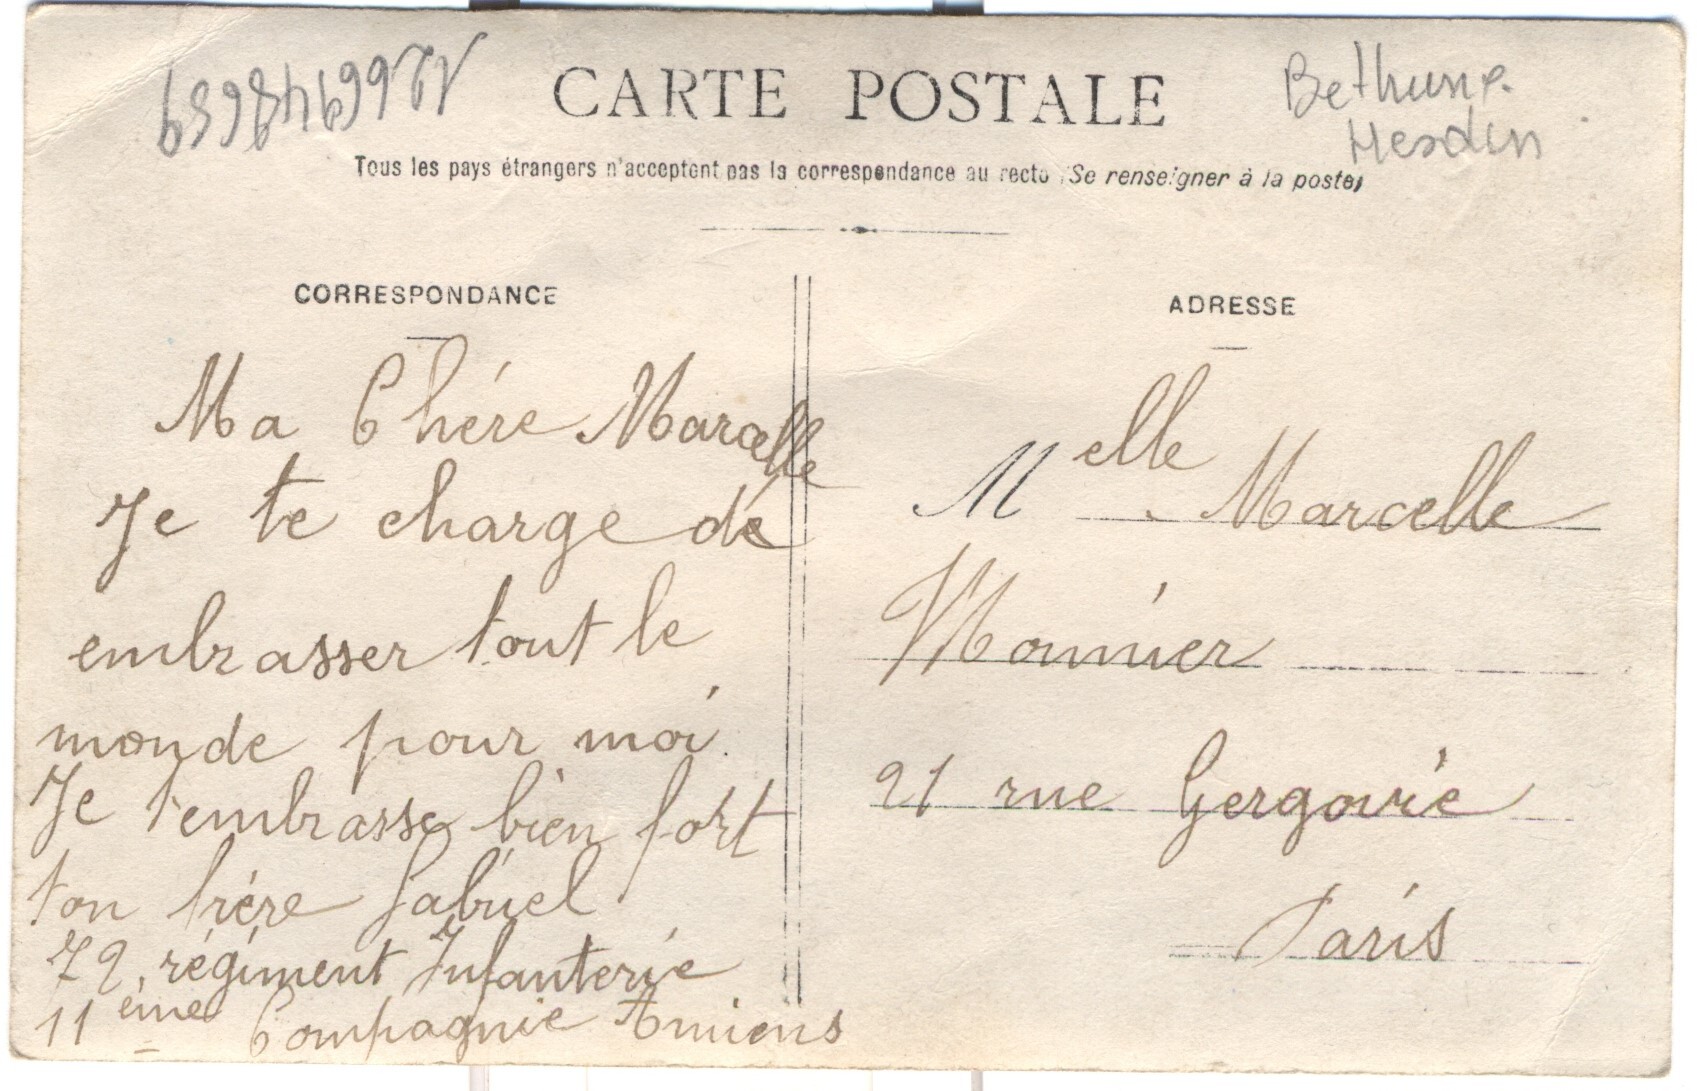 1266948659
CARTE POSTALE
Bethune.
Hesdin
Tous les pays étrangers n'acceptent pas la correspondance au recto (Se renseigner à la poste)
CORRESPONDANCE
Ma Chére Marcelle
Je te charge de
embrasser tout le
monde pour moi.
Je t'embrasse bien fort
ton frére Gabriel
72. régiment Infanterie
11ème Compagnie Amiens
ADRESSE
Melle Marcelle
Monnier
21 rue Gergovie
Paris